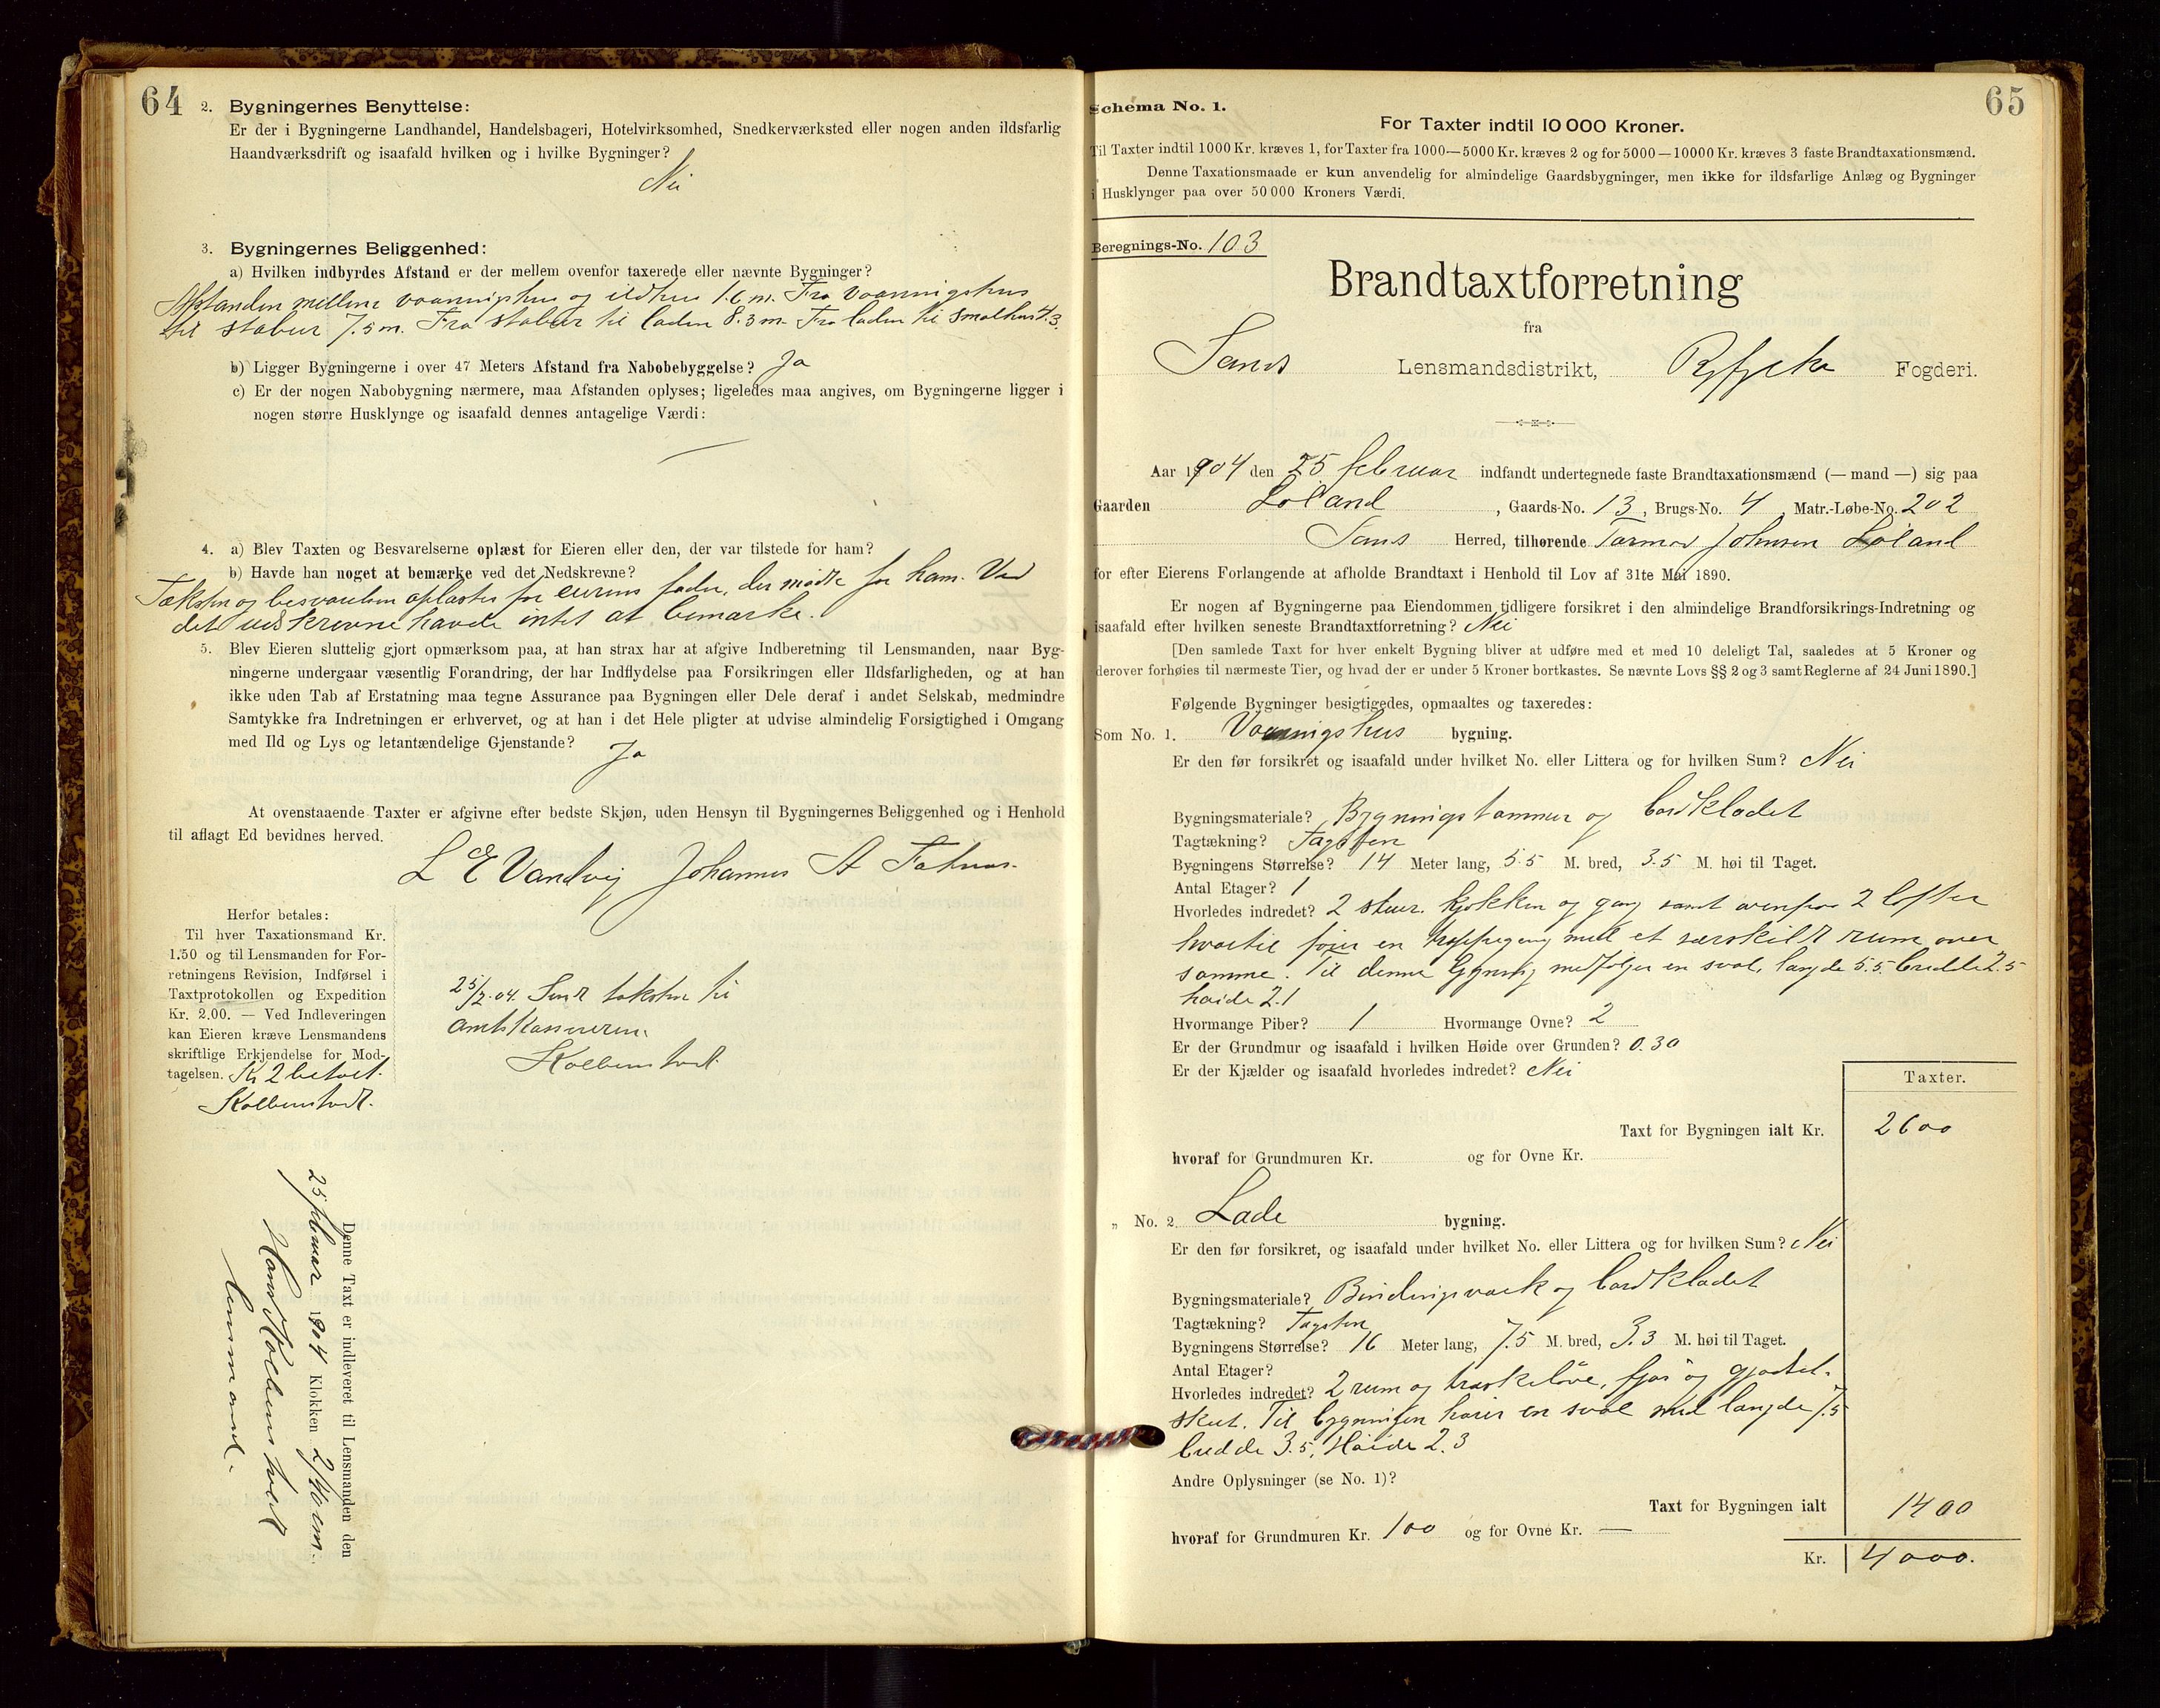 64
2. Bygningernes Benyttelse:
Er der i Bygningerne Landhandel, Handelsbageri, Hotelvirksomhed, Snedkerværksted eller nogen anden ildsfarlig
Haandværksdrift og isaafald hvilken og i hvilke Bygninger?
Nei
3. Bygningernes Beliggenhed:
a) Hvilken indbyrdes Afstand er der mellem ovenfor taxerede eller nævnte Bygninger?
Afstanden mellem vaaningshus og ildhus 1.6 m. Fra Vaaningshus
til stabur 7.5 m. Fra stabur til laden 8.3 m. Fra laden til smalhus 4.3.
b) Ligger Bygningerne i over 47 Meters Afstand fra Nabobebyggelse? Ja
c) Er der nogen Nabobygning nærmere, maa Afstanden oplyses; ligeledes maa angives, om Bygningerne ligger i
nogen større Husklynge og isaafald dennes antagelige Værdi:
4. a) Blev Taxten og Besvarelserne oplæst for Eieren eller den, der var tilstede for ham?
b) Havde han noget at bemærke ved det Nedskrevne?
Taksten og besvarelsen oplæstes for eierens fader, der mødte for ham. Ved
det nedskrevne havde intet at bemærke.
5. Blev Eieren sluttelig gjort opmærksom paa, at han strax har at afgive Indberetning til Lensmanden, naar Byg-
ningerne undergaar væsentlig Forandring, der har Indflydelse paa Forsikringen eller Ildsfarligheden, og at han
ikke uden Tab af Erstatning maa tegne Assurance paa Bygningen eller Dele deraf i andet Selskab, medmindre
Samtykke fra Indretningen er erhvervet, og at han i det Hele pligter at udvise almindelig Forsigtighed i Omgang
med Ild og Lys og letantændelige Gjenstande?
Ja
At ovenstaaende Taxter er afgivne efter bedste Skjøn, uden Hensyn til Bygningernes Beliggenhed og i Henhold
til aflagt Ed bevidnes herved.
L E Vandvig Johannes A
Herfor betales:
Til hver Taxationsmand Kr.
1.50 og til Lensmanden for For-
retningens Revision, Indførsel i
Taxtprotokollen og Expedition
Kr. 2.00. — Ved Indleveringen
kan Eieren kræve Lensmandens
skriftlige Erkjendelse for Mod-
tagelsen. Kr 2 betalt.
Kolbenstvedt.
25/2.04. Sendt taksten til
amtskassereren.
Kolbenstvedt.
Denne Taxt er indleveret til Lensmanden den
25 februar 1904 Klokken 2/40 em.
Hans Kolbenstvedt
lensmand.
65
Schema No. 1.
For Taxter indtil 10 000 Kroner.
Til Taxter indtil 1000 Kr. kræves 1, for Taxter fra 1000—5000 Kr. kræves 2 og for 5000—10000 Kr. kræves 3 faste Brandtaxationsmænd.
Denne Taxationsmaade er kun anvendelig for almindelige Gaardsbygninger, men ikke for ildsfarlige Anlæg og Bygninger
i Husklynger paa over 50 000 Kroners Værdi.
Beregnings-No. 103
Brandtaxtforretning
fra
Sands Lensmandsdistrikt, Ryfylke Fogderi.
Aar 1904 den 25 februar indfandt undertegnede faste Brandtaxationsmænd (— mand —) sig paa
Gaarden Loland, Gaards-No. 13, Brugs-No. 4, Matr.-Løbe-No. 202
Sands Herred, tilhørende Tarmod Johnsen Løland
for efter Eierens Forlangende at afholde Brandtaxt i Henhold til Lov af 31te Mai 1890.
Er nogen af Bygningerne paa Eiendommen tidligere forsikret i den almindelige Brandforsikrings-Indretning og
isaafald efter hvilken seneste Brandtaxtforretning? Nei
[Den samlede Taxt for hver enkelt Bygning bliver at udføre med et med 10 deleligt Tal, saaledes at 5 Kroner og
derover forhøies til nærmeste Tier, og hvad der er under 5 Kroner bortkastes. Se nævnte Lovs §§ 2 og 3 samt Reglerne af 24 Juni 1890.]
Følgende Bygninger besigtigedes, opmaaltes og taxeredes:
Som No. 1. Vaaningshus bygning.
Er den før forsikret og isaafald under hvilket No. eller Littera og for hvilken Sum? Nei
Bygningsmateriale? Bygningstømmer og bordklædet
Tagtækning? Tagsten
Bygningens Størrelse? 14 Meter lang, 5.5 M. bred, 3.5 M. høi til Taget.
Antal Etager? 1
Hvorledes indredet? 2 stuer. kjøkken og gang samt ovenpaa 2 lofter
hvortil fører en trappegang med et særskildt rum over
samme. Til denne bygning medfølger en sval, længde 5.5. bredde 2.5
høide 2.1
Hvormange Piber? 1 Hvormange Ovne? 2
Er der Grundmur og isaafald i hvilken Høide over Grunden? 0.30
Er der Kjælder og isaafald hvorledes indredet? Nei
Taxter.
Taxt for Bygningen ialt Kr. 2600
hvoraf for Grundmuren Kr. og for Ovne Kr.
„ No. 2. Lade bygning.
Er den før forsikret, og isaafald under hvilket No. eller Littera og for hvilken Sum? Nei
Bygningsmateriale? Bindingsværk og bordklædet
Tagtækning? Tagsten
Bygningens Størrelse? 16 Meter lang, 7.5 M. bred, 3.3 M. høi til Taget.
Antal Etager?
Hvorledes indredet? 2 rum og træskeløve, fjøs og gjødsel-
skut. Til bygningen hører en sval med længde 7.5
bredde 3.5, Høide 2.3
Andre Oplysninger (se No. 1)?
Taxt for Bygningen ialt 1400
hvoraf for Grundmuren Kr. 100 og for Ovne Kr. —
Kr. 4000.